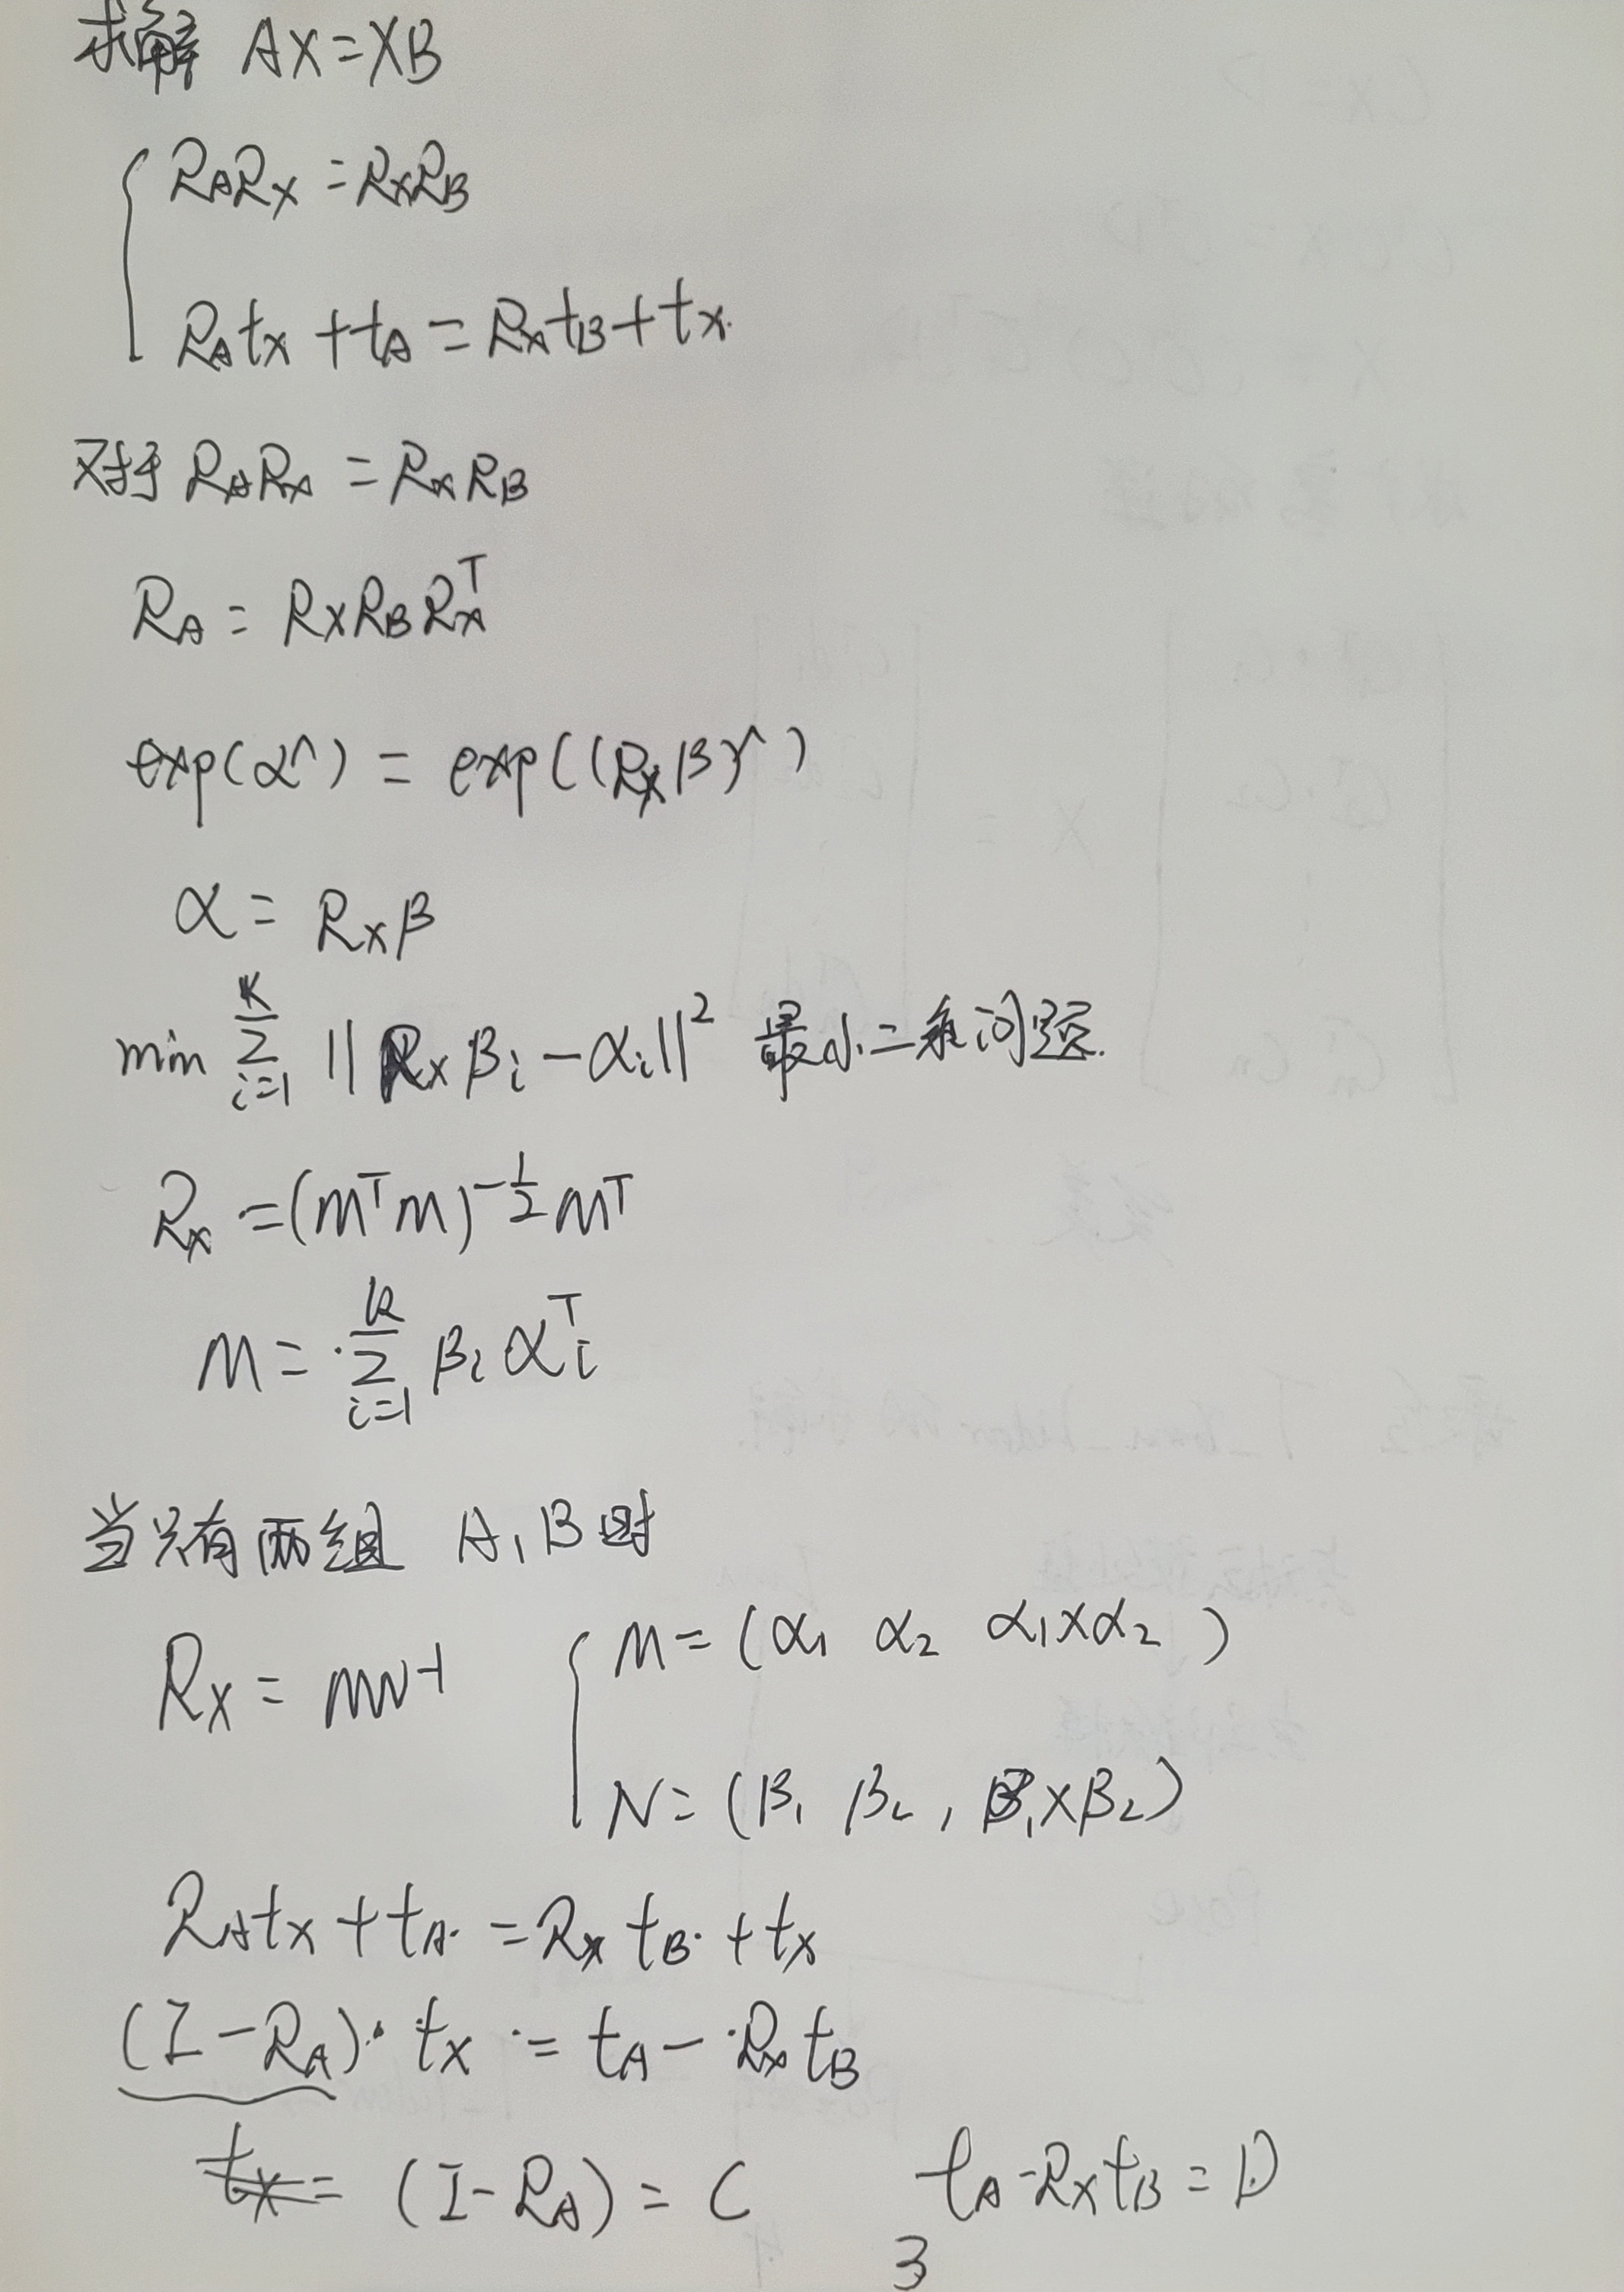 求解 AX=XB
R_A R_X = R_X R_B
R_A t_X + t_A = R_X t_B + t_X.
对于 R_A R_X = R_X R_B
R_A = R_X R_B R_X^T
exp(α^) = exp((R_X β)^)
α = R_X β
min Σ_{i=1}^{K} ||R_X β_i - α_i||^2 最小二乘问题.
R_X = (M^T M)^{-1/2} M^T
M = Σ_{i=1}^{k} β_i α_i^T
当只有两组 A,B时
R_X = MN^{-1} { M = (α_1 α_2 α_1×α_2)
N = (β_1 β_2, β_1×β_2)
R_A t_X + t_A = R_X t_B + t_X
(I-R_A)· t_X = t_A - R_X t_B
t_X = (I-R_A) = C t_A - R_X t_B = D
3